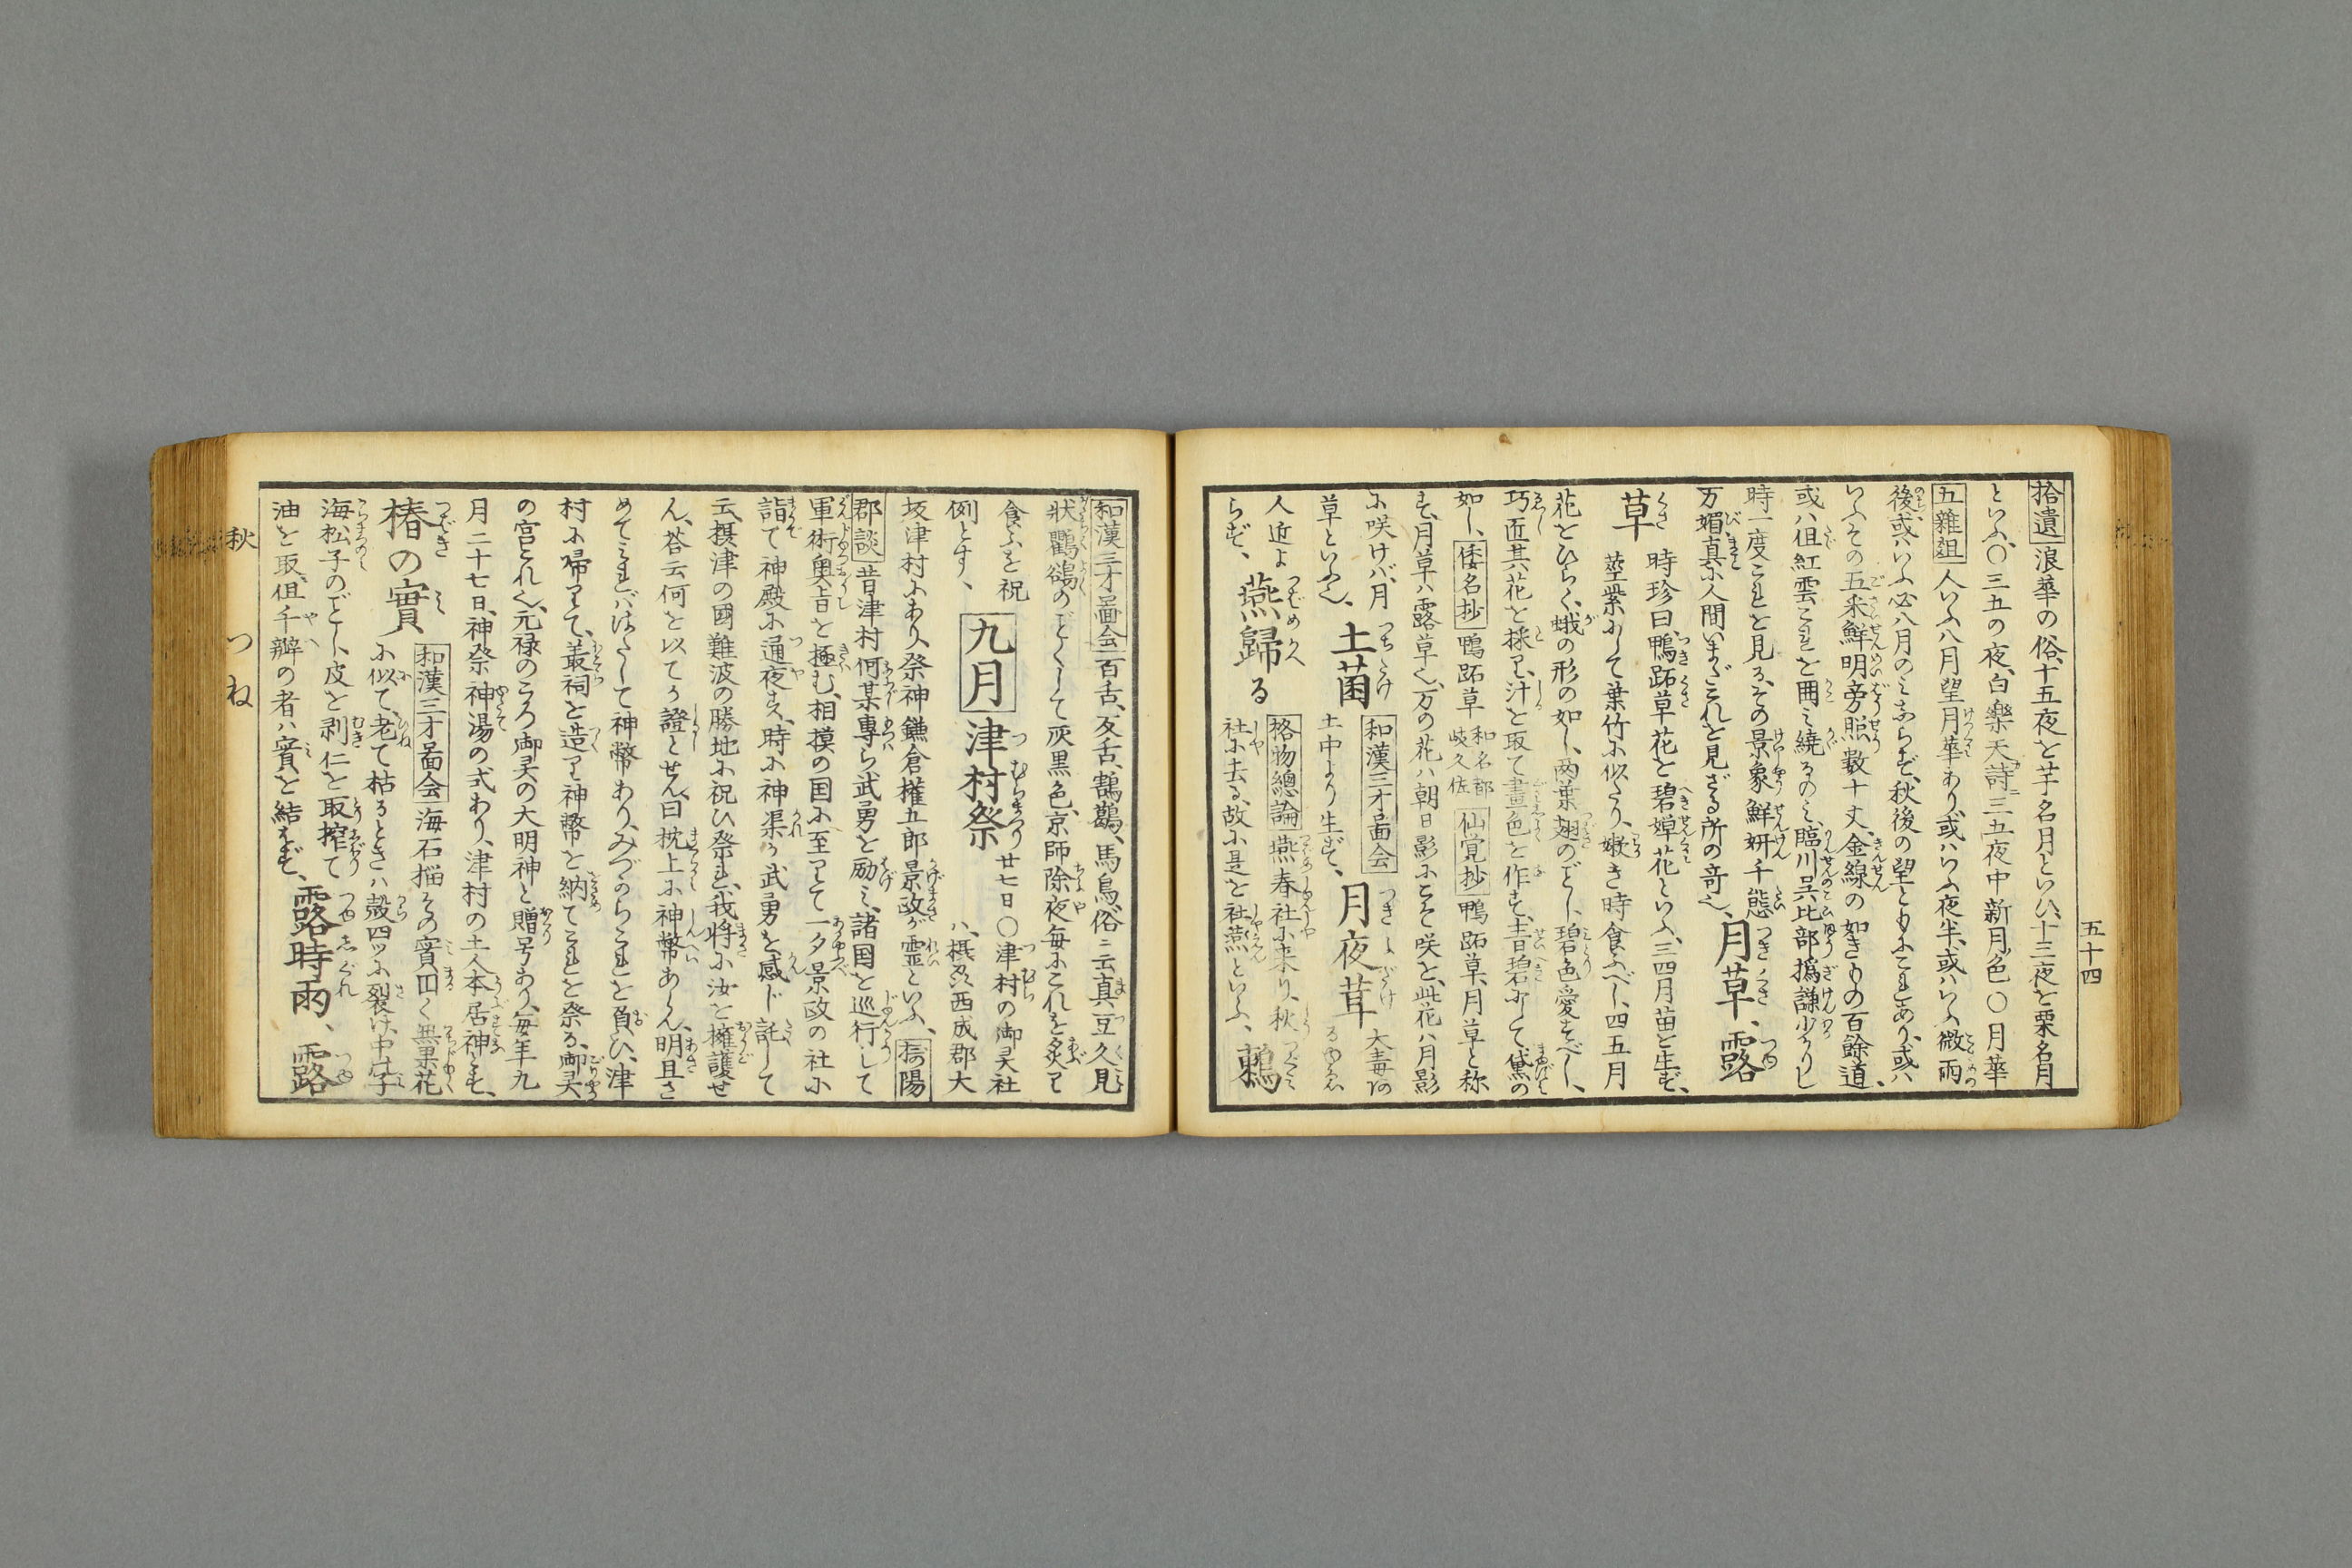 五十四
拾遺 浪華の俗、十五夜を芋名月といひ、十三夜を栗名月
といふ、〇三五の夜、白樂天詩ニ三五夜中新月色〇月華
五雜俎 人いふ八月望月華あり、或ハいふ夜半、或ハいふ微雨
後、或ハいふ必八月のミならず、秋後の望ともにこれあり、或ハ
いふその五采鮮明旁照数十丈、金線の如きもの百餘道、
或ハ但紅雲これを囲ミ繞るのミ、臨川呉比部撝謙少かりし
時一度これを見る、その景象鮮妍千態
万媚真に人間いまだこれを見ざる所の奇也、 月草、露
草 時珍曰、鴨跖草花を碧嬋花といふ、三四月苗を生ず、
莖紫にして葉竹に似たり、嫩き時食ふべし、四五月
花をひらく、蛾の形の如し、両葉翅のごとし、碧色愛すべし、
巧匠其花を採り、汁を取て畫色を作す、青碧にして黛の
如し、 倭名抄 鴨跖草 和名都岐久佐 仙覚抄 鴨跖草、月草と称
す、月草ハ露草也、万の花ハ朝日影にこそ咲を、此花ハ月影
に咲けバ、月 土菌 和漢三才圖会 月夜茸 大毒あ
草といふ也、 土中より生ず、 るゆゑ
人近よ 燕歸る 格物總論 燕春社に来り、秋
らず、 社に去る、故に是を社燕といふ、 鶫
和漢三才圖会 百舌、反舌、鶷鶡、馬鳥、俗ニ云真豆久見
狀鸜鵒のごとくして灰黒色、京師除夜毎にこれを炙り
食ふを祝 九月 津村祭 廿七日〇津村の御灵社
例とす、 ハ、摂州西成郡大
坂津村にあり、祭神鎌倉權五郎景政が霊といふ、 摂陽
郡談 昔津村何某專ら武勇を励ミ、諸国を巡行して
軍術奥旨を極む、相摸の国に至りて一夕景政の社に
詣で神殿に通夜す、時に神渠が武勇を感じ託して
云、摂津の國難波の勝地に祝ひ祭れ、我将に汝を擁護せ
ん、荅云何を以てか證とせん、曰枕上に神幣あらん、明旦さ
めてこれバはたして神幣あり、みづからこれを負ひ、津
村に帰りて、叢祠を造り神幣を納てこれを祭る、御灵
の宮これ也、元禄のころ御灵の大明神と贈号あり、毎年九
月二十七日、神祭神湯の式あり、津村の土人本居神とす、
椿の實 和漢三才圖会 海石榴その實円く無果花
に似て、老て枯るときハ殻四ツに裂け、中子
海松子のごとし、皮を剥仁を取搾て 露時雨、露
油を取、但千瓣の者ハ實を結ばず、
秋 つね